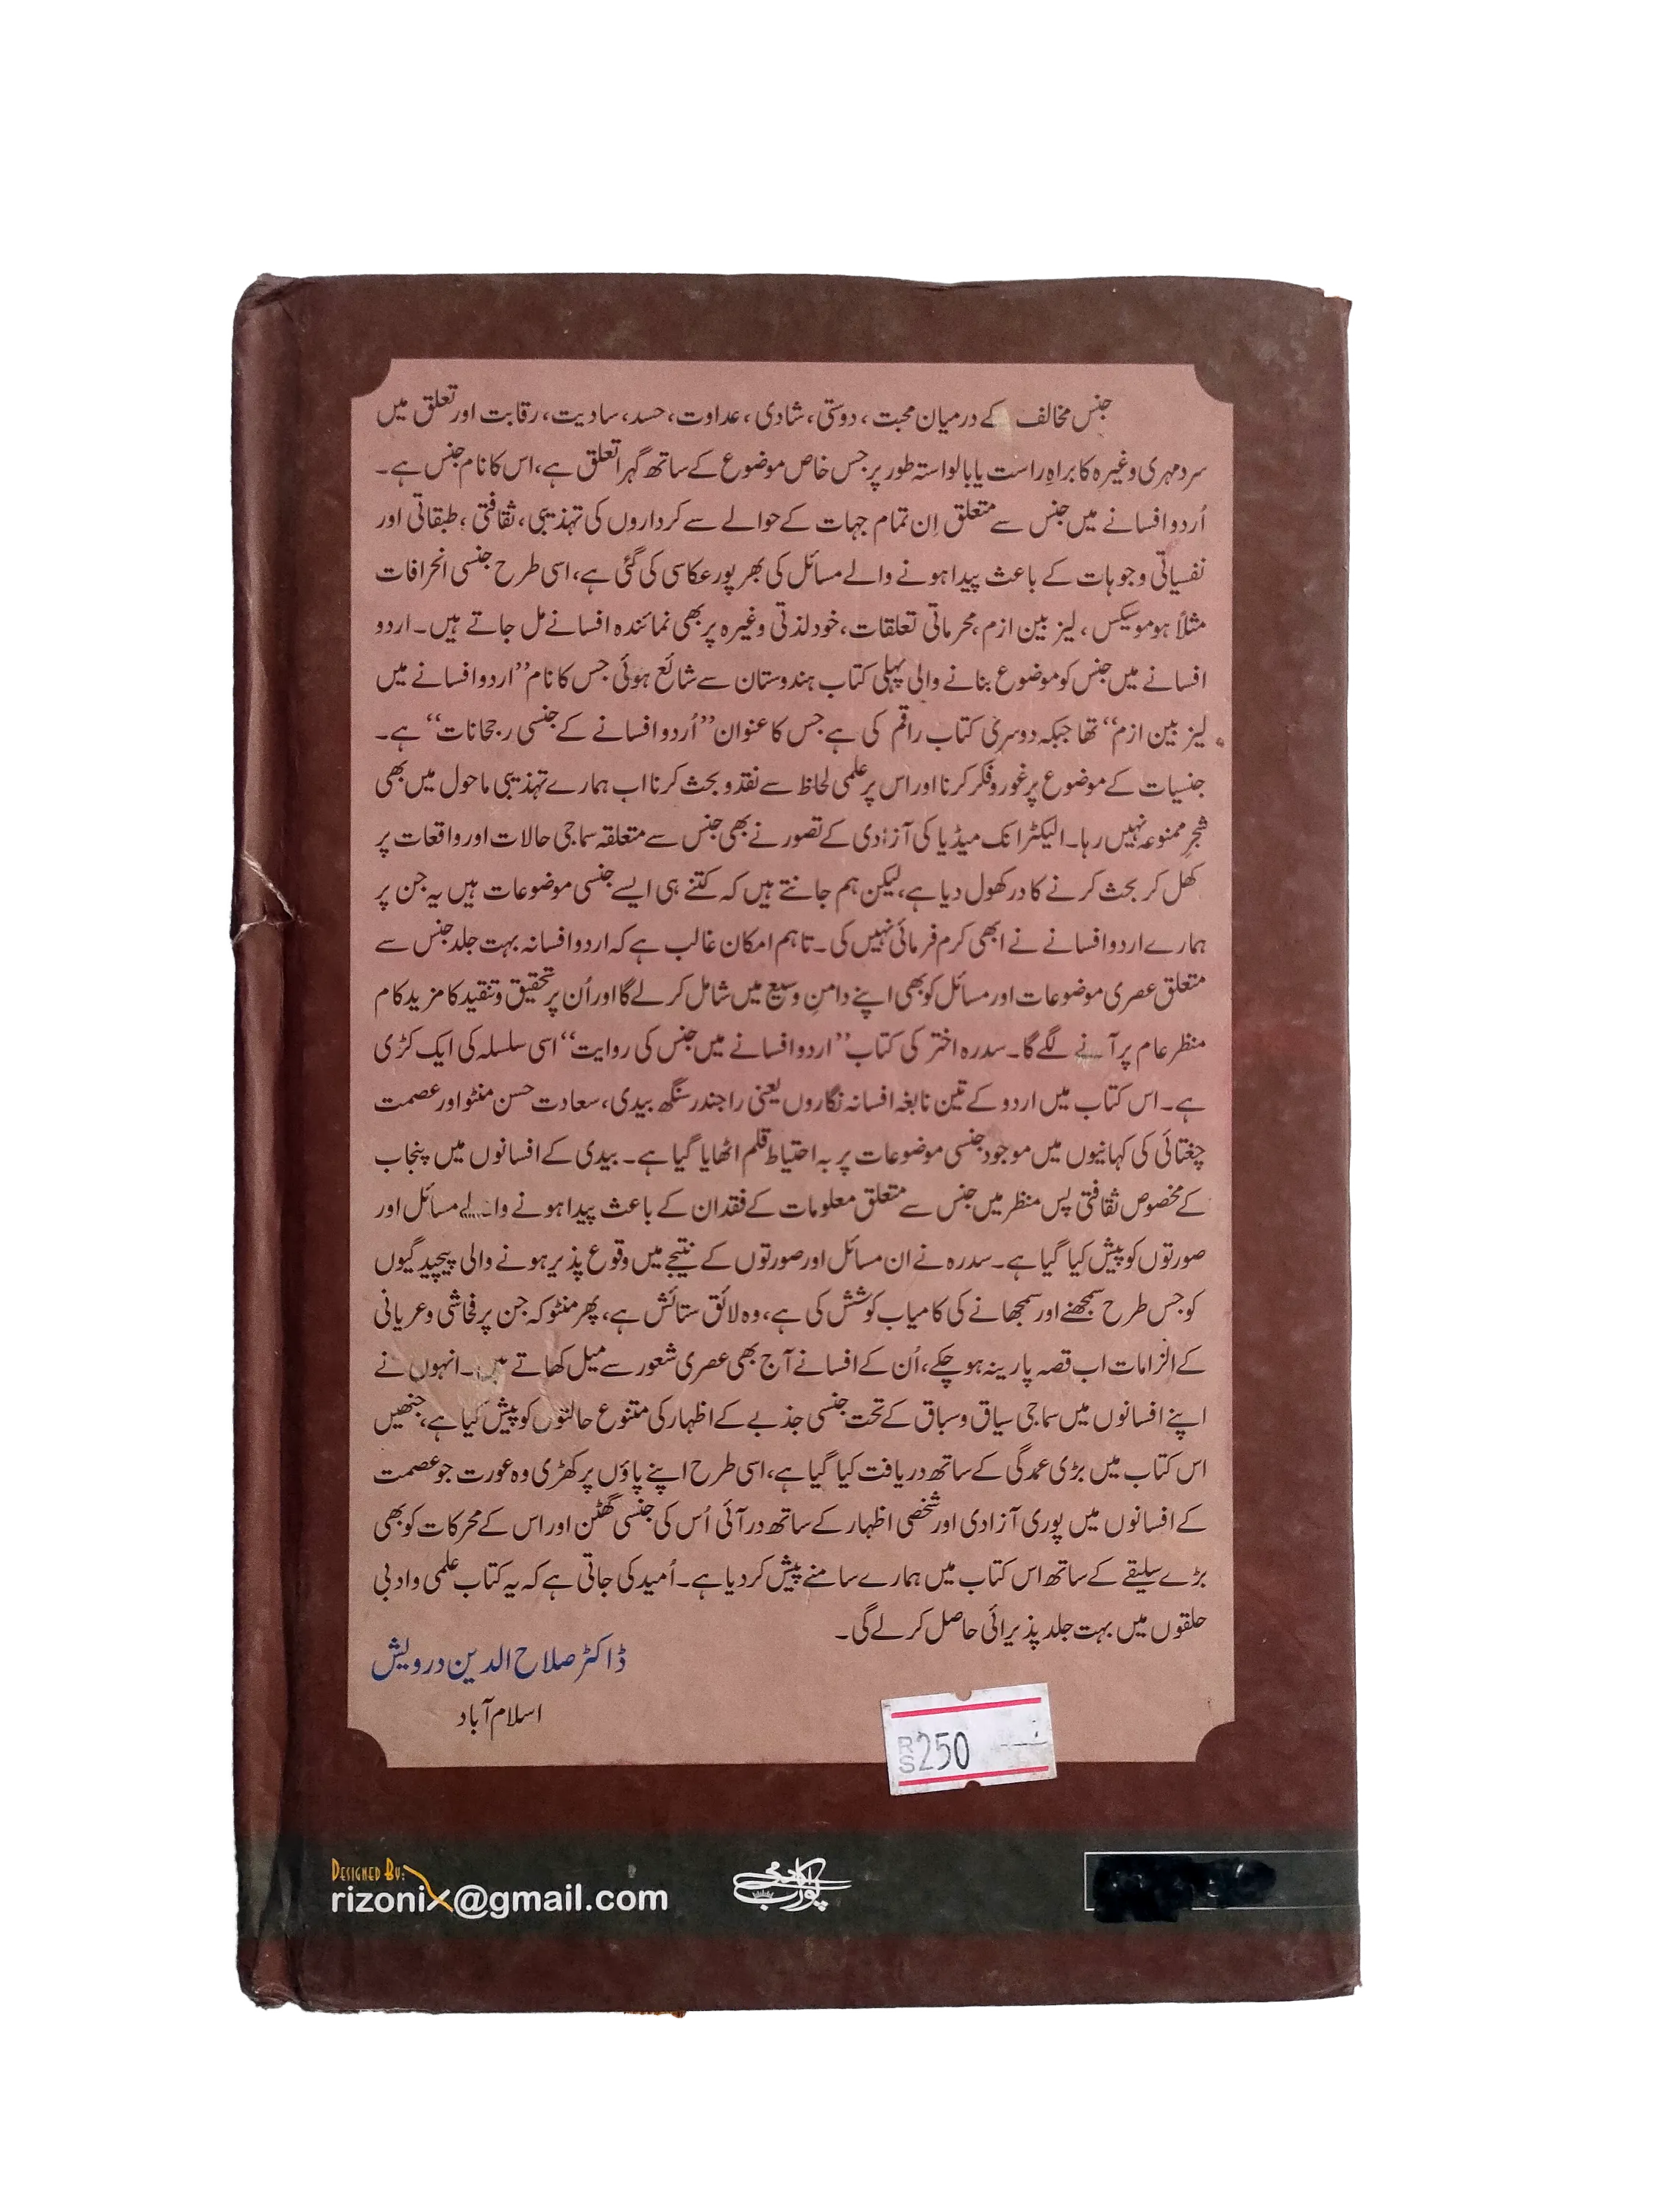 جنس مخالف کے درمیان محبت، دوستی، شادی، عداوت، حسد، سادیت، رقابت اور تعلق میں
سرد مہری وغیرہ کا براہِ راست یا بالواستہ طور پر جس خاص موضوع کے ساتھ گہرا تعلق ہے، اس کا نام جنس ہے۔
اُردو افسانے میں جنس سے متعلق اِن تمام جہات کے حوالے سے کرداروں کی تہذیبی، ثقافتی، طبقاتی اور
نفسیاتی وجوہات کے باعث پیدا ہونے والے مسائل کی بھرپور عکاسی کی گئی ہے، اسی طرح جنسی انحرافات
مثلاً ہوموسیکس، لیز بین ازم، محرماتی تعلقات، خود لذتی وغیرہ پر بھی نمائندہ افسانے مل جاتے ہیں۔ اردو
افسانے میں جنس کو موضوع بنانے والی پہلی کتاب ہندوستان سے شائع ہوئی جس کا نام ”اردو افسانے میں
لیز بین ازم“ تھا جبکہ دوسری کتاب راقم کی ہے جس کا عنوان ”اُردو افسانے کے جنسی رجحانات“ ہے۔
جنسیات کے موضوع پر غور و فکر کرنا اور اس پر علمی لحاظ سے نقد و بحث کرنا اب ہمارے تہذیبی ماحول میں بھی
شجرِ ممنوعہ نہیں رہا۔ الیکٹرانک میڈیا کی آزادی کے تصور نے بھی جنس سے متعلقہ سماجی حالات اور واقعات پر
کھل کر بحث کرنے کا در کھول دیا ہے، لیکن ہم جانتے ہیں کہ کتنے ہی ایسے جنسی موضوعات ہیں یہ جن پر
ہمارے اردو افسانے نے ابھی کرم فرمائی نہیں کی۔ تاہم امکان غالب ہے کہ اردو افسانہ بہت جلد جنس سے
متعلق عصری موضوعات اور مسائل کو بھی اپنے دامنِ وسیع میں شامل کر لے گا اور اُن پر تحقیق و تنقید کا مزید کام
منظر عام پر آنے لگے گا۔ سدرہ اختر کی کتاب ”اردو افسانے میں جنس کی روایت“ اسی سلسلہ کی ایک کڑی
ہے۔ اس کتاب میں اردو کے تین نابغہ افسانہ نگاروں یعنی راجندر سنگھ بیدی، سعادت حسن منٹو اور عصمت
چغتائی کی کہانیوں میں موجود جنسی موضوعات پر بہ احتیاط قلم اٹھایا گیا ہے۔ بیدی کے افسانوں میں پنجاب
کے مخصوص ثقافتی پس منظر میں جنس سے متعلق معلومات کے فقدان کے باعث پیدا ہونے والے مسائل اور
صورتوں کو پیش کیا گیا ہے۔ سدرہ نے ان مسائل اور صورتوں کے نتیجے میں وقوع پذیر ہونے والی پیچیدگیوں
کو جس طرح سمجھنے اور سمجھانے کی کامیاب کوشش کی ہے، وہ لائق ستائش ہے، پھر منٹو کہ جن پر فحاشی و عریانی
کے الزامات اب قصہ پارینہ ہو چکے، اُن کے افسانے آج بھی عصری شعور سے میل کھاتے ہیں۔ انہوں نے
اپنے افسانوں میں سماجی سیاق و سباق کے تحت جنسی جذبے کے اظہار کی متنوع حالتوں کو پیش کیا ہے، جنھیں
اس کتاب میں بڑی عمدگی کے ساتھ دریافت کیا گیا ہے، اسی طرح اپنے پاؤں پر کھڑی وہ عورت جو عصمت
کے افسانوں میں پوری آزادی اور شخصی اظہار کے ساتھ در آئی اُس کی جنسی گھٹن اور اس کے محرکات کو بھی
بڑے سلیقے کے ساتھ اس کتاب میں ہمارے سامنے پیش کر دیا ہے۔ اُمید کی جاتی ہے کہ یہ کتاب علمی و ادبی
حلقوں میں بہت جلد پذیرائی حاصل کر لے گی۔
ڈاکٹر صلاح الدین درویش
اسلام آباد
RS 250
DESIGNED BY:
rizonix@gmail.com
پورب اکادمی